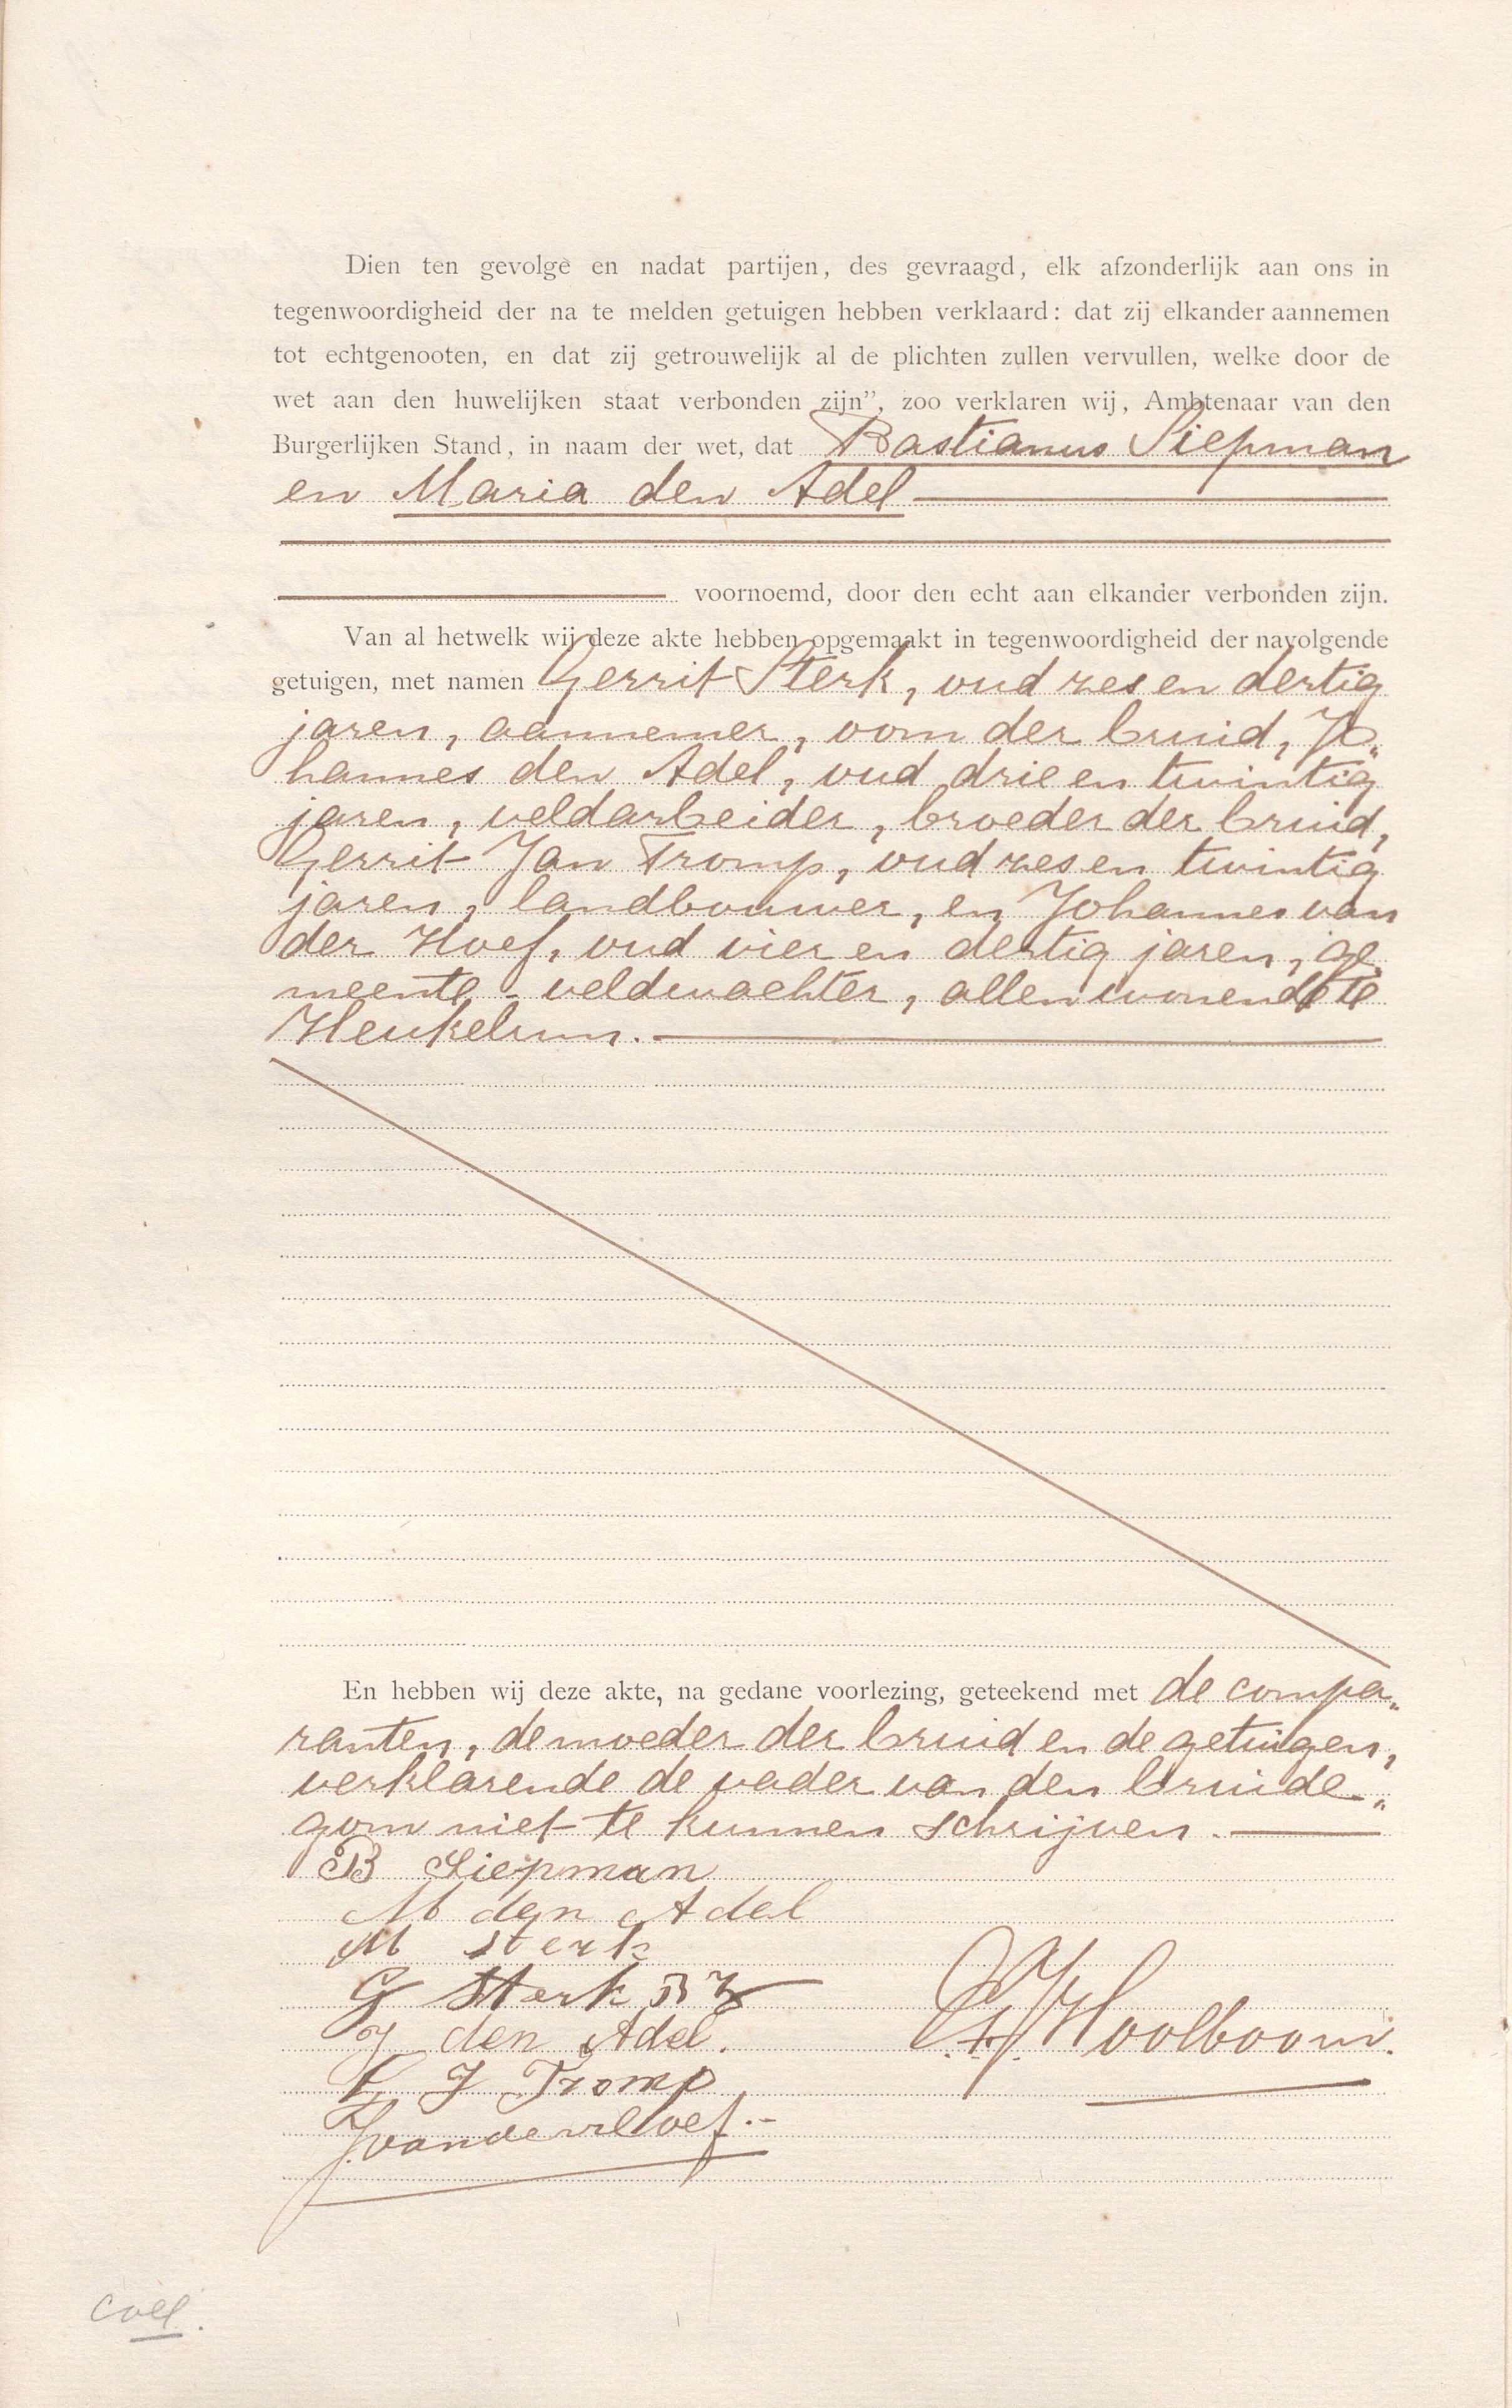 Dien ten gevolge en nadat partijen, des gevraagd, elk afzonderlijk aan ons in
tegenwoordigheid der na te melden getuigen hebben verklaard: dat zij elkander aannemen
tot echtgenooten, en dat zij getrouwelijk al de plichten zullen vervullen, welke door de
wet aan den huwelijken staat verbonden zijn”, zoo verklaren wij, Ambtenaar van den
Burgerlijken Stand, in naam der wet, dat Bastianus Siepman
en Maria den Adel
voornoemd, door den echt aan elkander verbonden zijn.
Van al hetwelk wij deze akte hebben opgemaakt in tegenwoordigheid der navolgende
getuigen, met namen Gerrit Sterk, oud zes en dertig
jaren, aannemer, oom der bruid, Jo„
hannes den Adel, oud drie en twintig
jaren, veldarbeider, broeder der bruid,
Gerrit Jan Tromp, oud zes en twintig
jaren, landbouwer, en Johannes van
der Hoef, oud vier en dertig jaren, ge„
meente-veldwachter, allen wonende te
Heukelum.
En hebben wij deze akte, na gedane voorlezing, geteekend met de compa„
ranten, de moeder der bruid en de getuigen,
verklarende de vader van den bruide-„
gom niet te kunnen schrijven.
B Siepman
M den Adel
M Sterk
G Sterk Bz
J den Adel.
G J Tromp
J van der Hoef.-
Hoolboom.
coll.